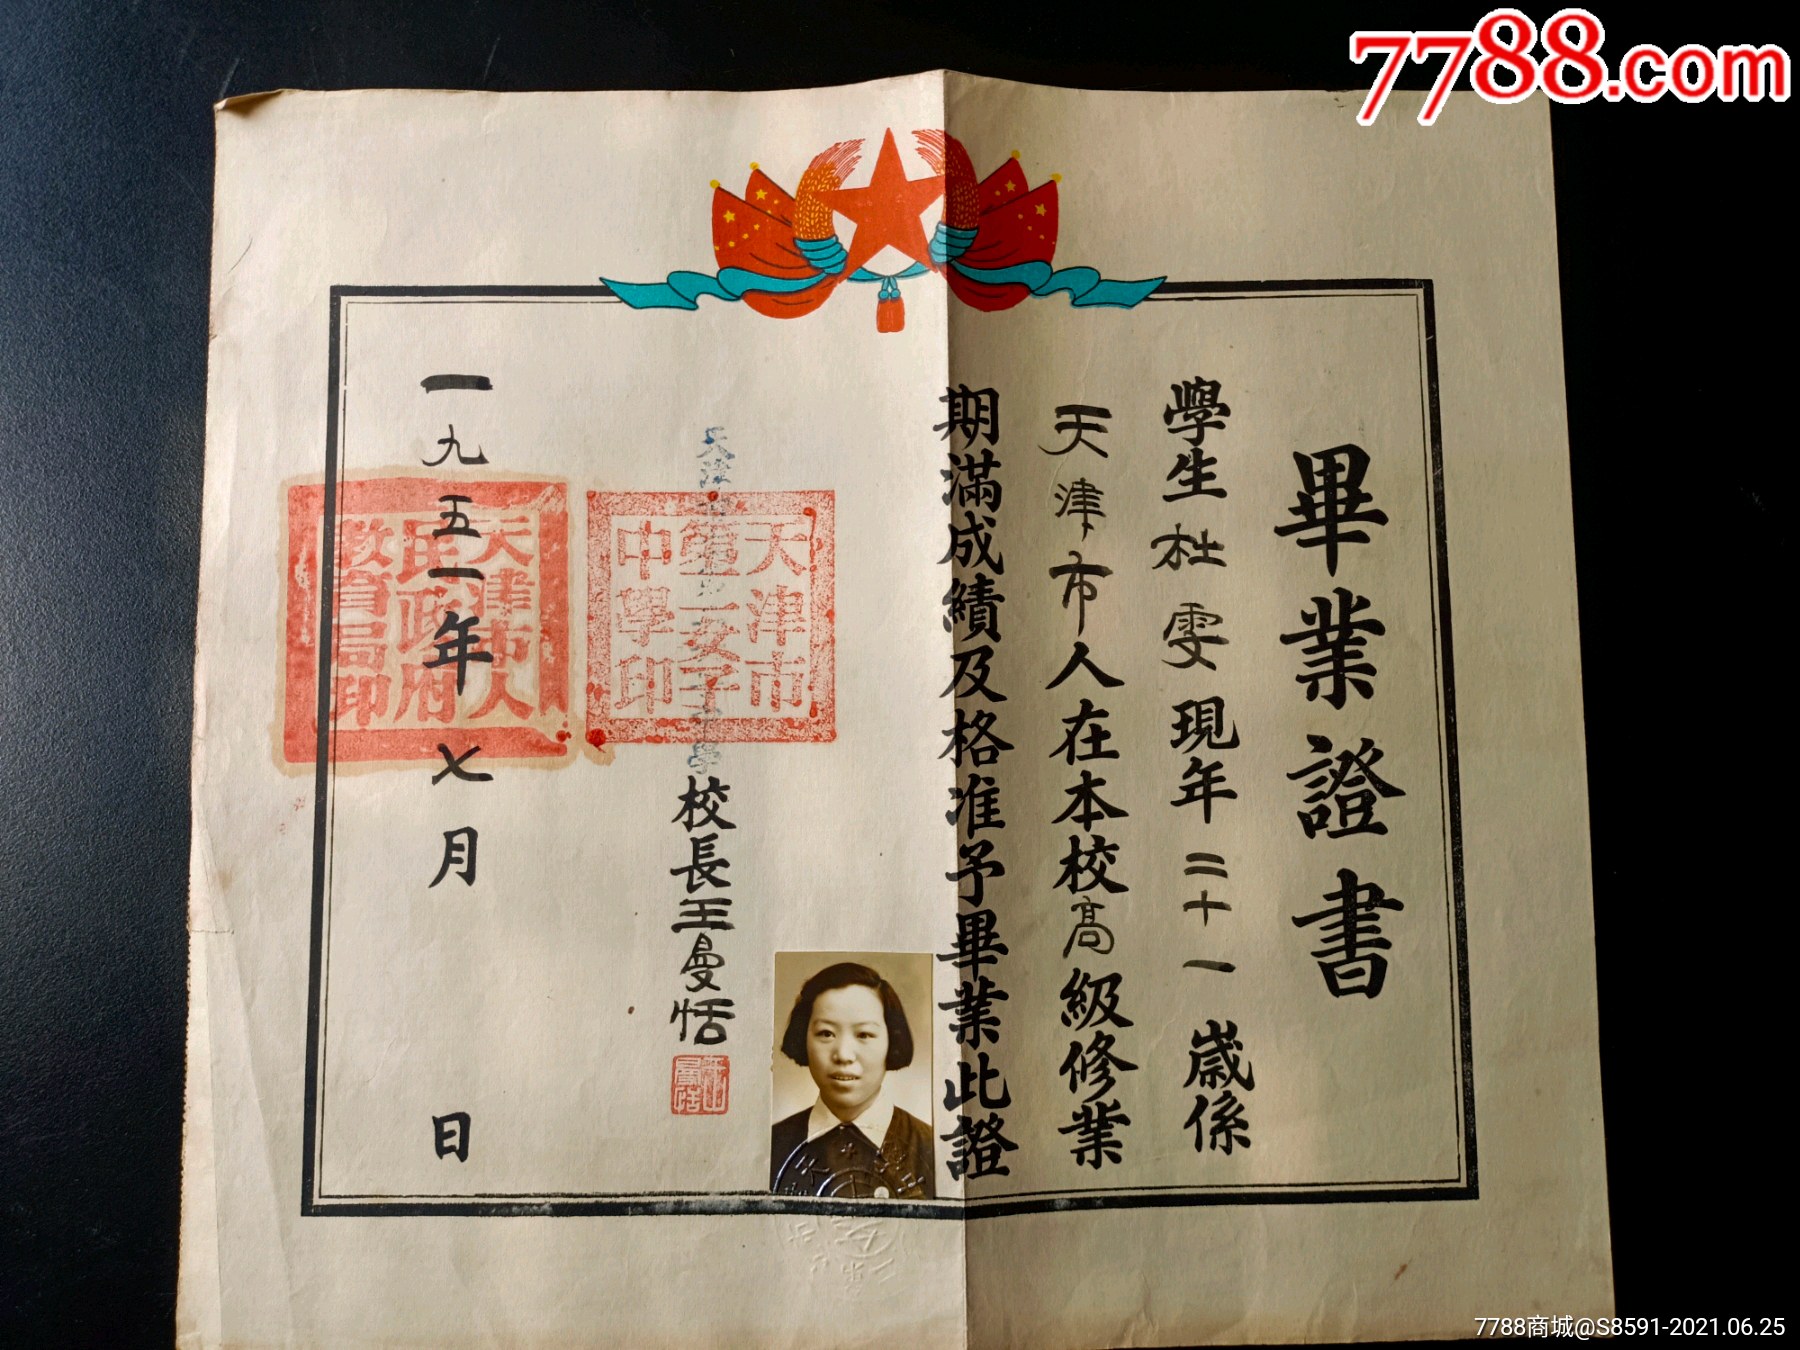 7788.com
畢業證書
學生杜雯現年二十一歲係
天津市人在本校高級修業
期滿成績及格准予畢業此證
校長王曼恬
天津市
第一女子
中學印
一九五一年七月 日
天津市人
民政府
教育局印
7788商城@S8591-2021.06.25